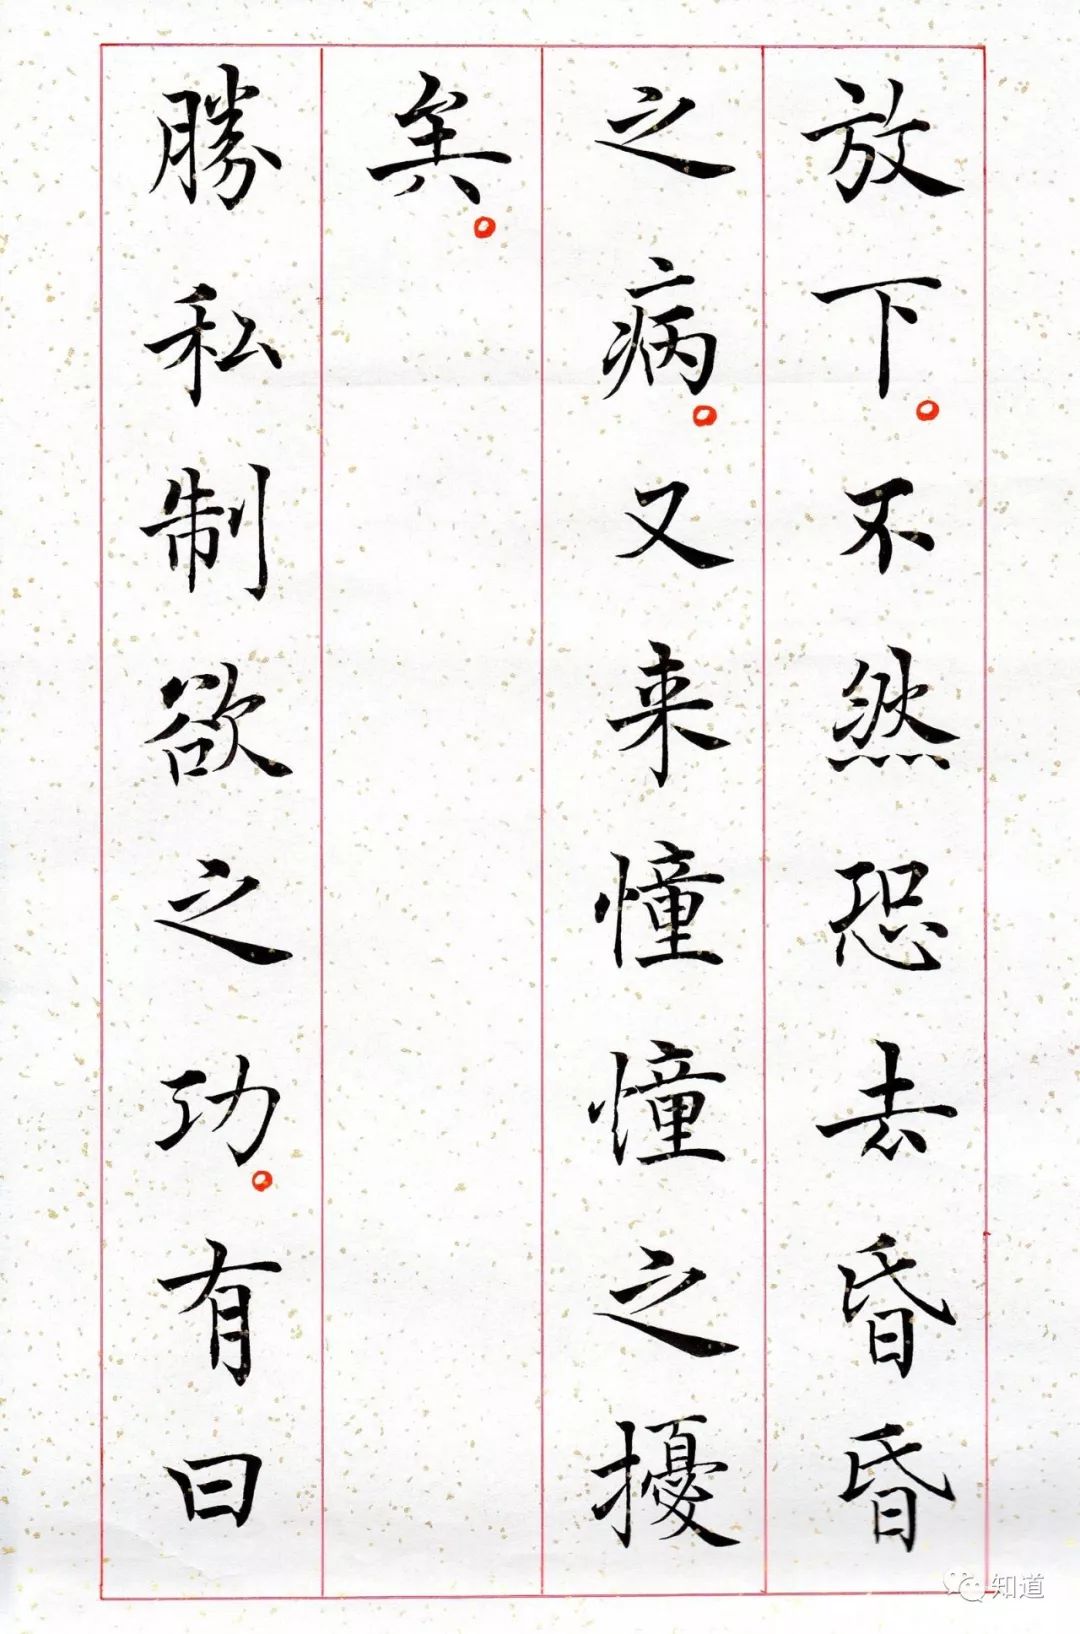 放下。不然恐去昏昏
之病。又来憧憧之擾
矣。
勝私制欲之功。有曰
知道